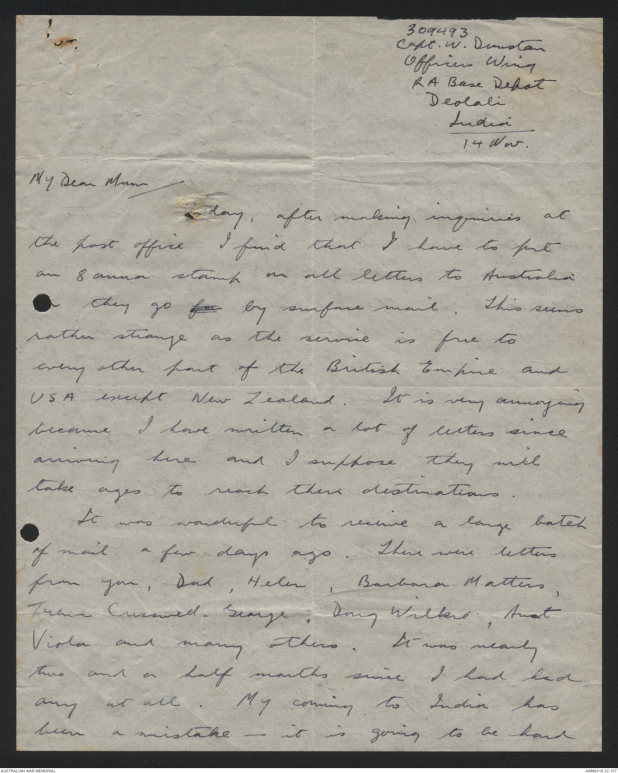 309493
Capt. W. Dunstan
Officers Wing
RA Base Depot
Deolali
India
14 Nov.
My Dear Mum
To day, after making inquiries at
the post office I find that I have to put
an 8 anna stamp on all letters to Australia
or they go for by surface mail. This seems
rather strange as the service is free to
every other part of the British Empire and
USA except New Zealand. It is very annoying
because I have written a lot of letters since
arriving here and I suppose they will
take ages to reach there destinations.
It was wonderful to receive a large batch
of mail a few days ago. There were letters
from you, Dad, Helen, Barbara Matters,
George, Doug Wilkie, Aunt
Viola and many others. It was nearly
two and a half months since I had had
any at all. My coming to India has
been a mistake — it is going to be hard
AUSTRALIAN WAR MEMORIAL